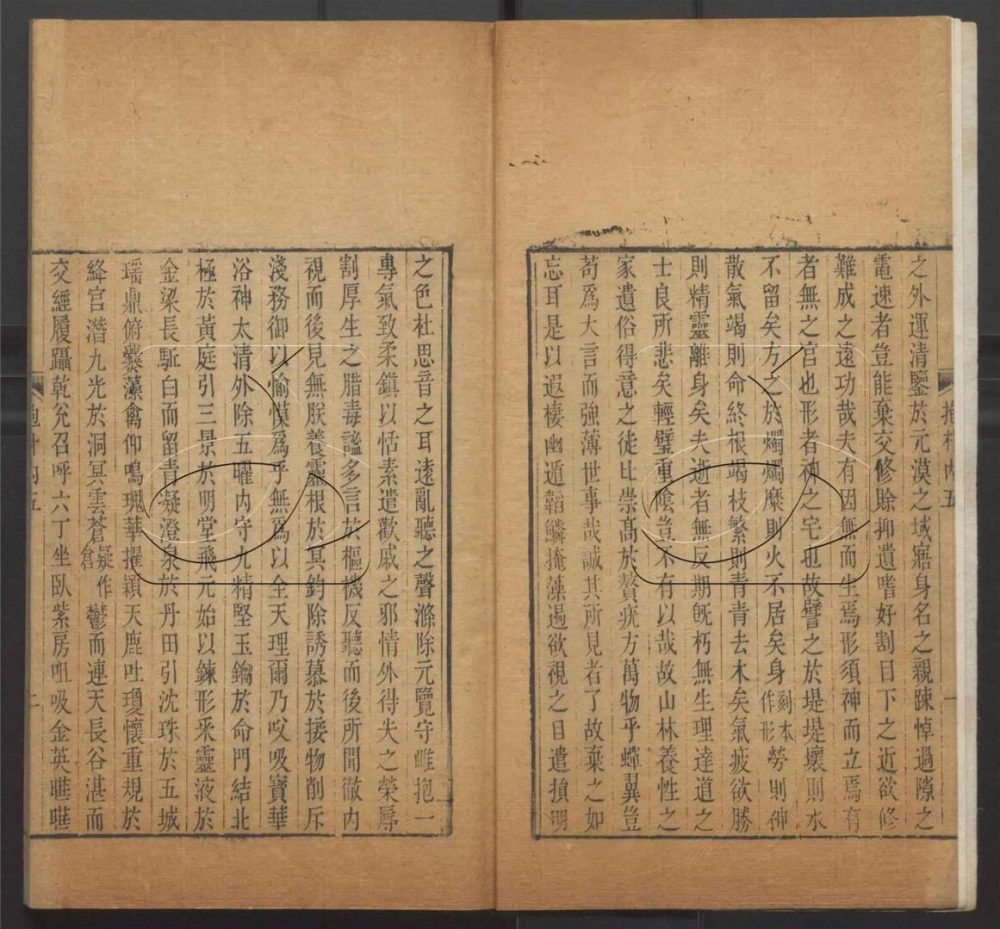 之外運清鑒於元漠之域寤身名之親踈悼過隙之
電速者豈能棄交修賒抑遺嗜好割目下之近欲修
難成之遠功哉夫有因無而生焉形須神而立焉有
者無之宮也形者神之宅也故譬之於堤堤壞則水
不留矣方之於燭燭糜則火不居矣身刻本作形勞則神
散氣竭則命終根竭枝繁則青青去木矣氣疲欲勝
則精靈離身矣夫逝者無反期既朽無生理達道之
士良所悲矣輕璧重陰豈不有以哉故山林養性之
家遺俗得意之徒比崇高於贅疣方萬物乎蟬翼豈
苟爲大言而強薄世事哉誠其所見者了故棄之如
忘耳是以遐棲幽遁韜鱗掩藻遏欲視之目遣損明
抱朴内五
一
之色杜思音之耳遠亂聽之聲滌除元覽守雌抱一
專氣致柔鎮以恬素遣歡戚之邪情外得失之榮辱
割厚生之腊毒謐多言於樞機反聽而後所聞徹内
視而後見無朕養靈根於冥鈞除誘慕於接物削斥
淺務御以愉慔爲乎無爲以全天理爾乃㕮吸寶華
浴神太清外除五曜内守九精堅玉鑰於命門結北
極於黃庭引三景於明堂飛元始以鍊形采靈液於
金梁長駈白而留青凝澄泉於丹田引沈珠於五城
瑶鼎俯爨藻禽仰鳴瑰華擢穎天鹿吐瓊懷重規於
絳宮潛九光於洞冥雲蒼疑作倉鬱而連天長谷湛而
交經履躡乾兊召呼六丁坐臥紫房咀吸金英曄曄
二